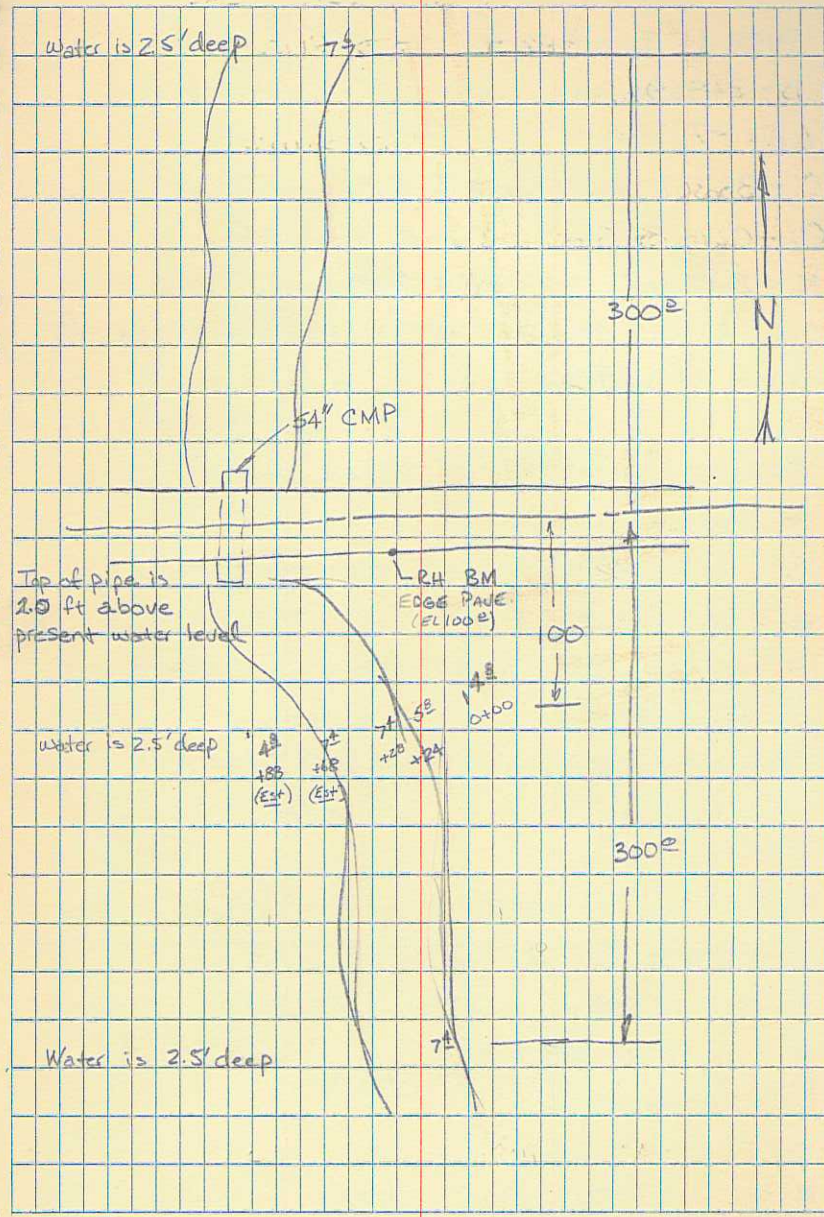 Water is 2.5' deep
7 4
300 0
N
54" CMP
Top of pipe is
2.0 ft above
present water level
RH BM
EDGE PAVE.
(EL 100 0)
100
4 8
0+00
5 8
+24
7 4
+28
Water is 2.5' deep
4 8
+83
(Est)
7 4
+68
(Est)
300 0
7 4
Water is 2.5' deep